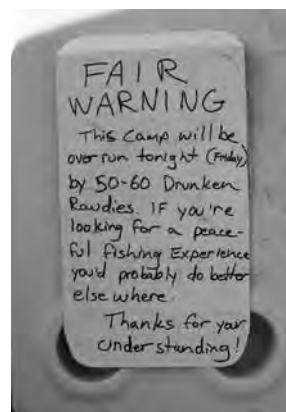 FAIR
WARNING
This Camp will be
over run tonight (Friday)
by 50-60 Drunken
Rowdies. IF you're
looking for a peace-
ful fishing Experience
you'd probably do better
else where.
Thanks for your
Understanding!